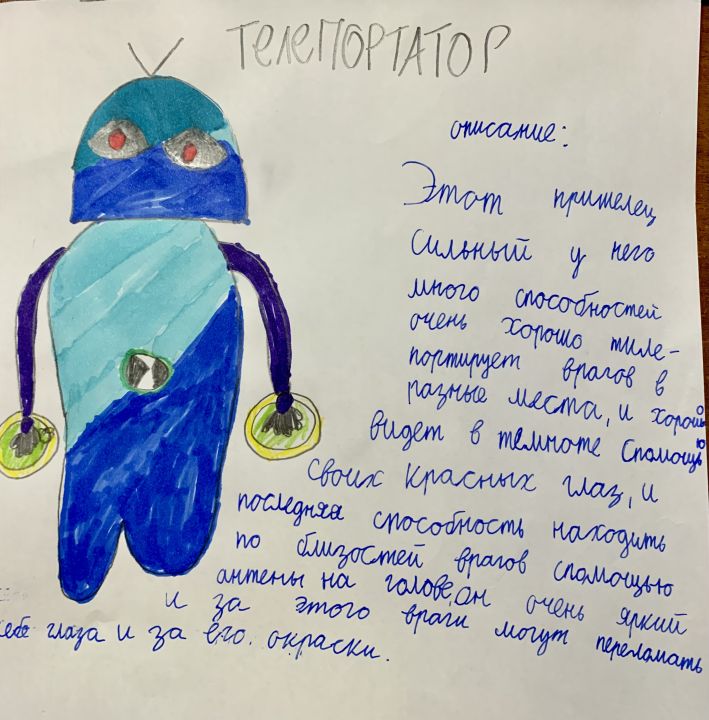 ТЕЛЕПОРТАТОР
описание:
Этот пришелец
сильный у него
много способностей
очень хорошо тиле-
портирует врагов в
разные места, и хорошо
видет в темноте спомощью
своих красных глаз, и
последняя способность находить
по близостей врагов спомощью
антены на голове, он очень яркий
и за этого враги могут переломать
себе глаза и за его окраски.